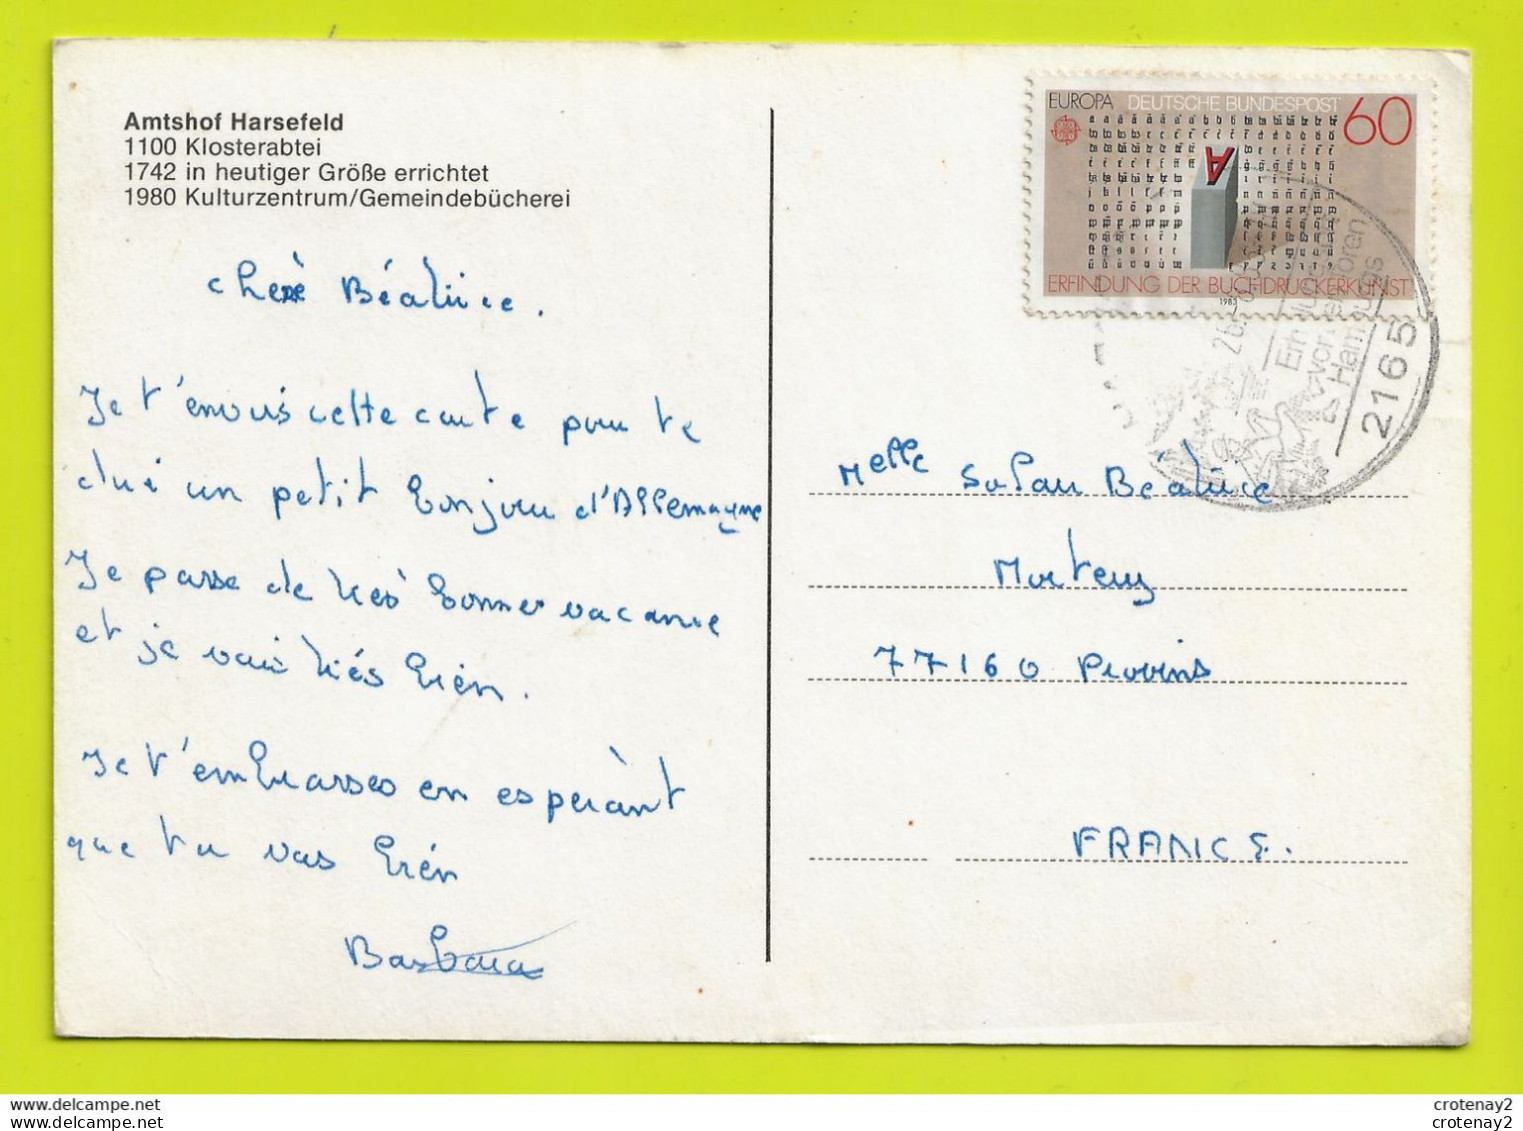 Amtshof Harsefeld
1100 Klosterabtei
1742 in heutiger Größe errichtet
1980 Kulturzentrum/Gemeindebücherei
chère Béatrice.
Je t'envois cette carte pour te
dire un petit bonjour d'Allemagne
Je passe de très bonnes vacance
et je vais très bien.
Je t'embrasses en espérant
que tu vas bien
Barbara
EUROPA DEUTSCHE BUNDESPOST 60
ERFINDUNG DER BUCHDRUCKERKUNST
1983
vor den Toren
Hamburgs
2165
Melle Béatrice
77160 Provins
FRANCE.
crotenay2
crotenay2